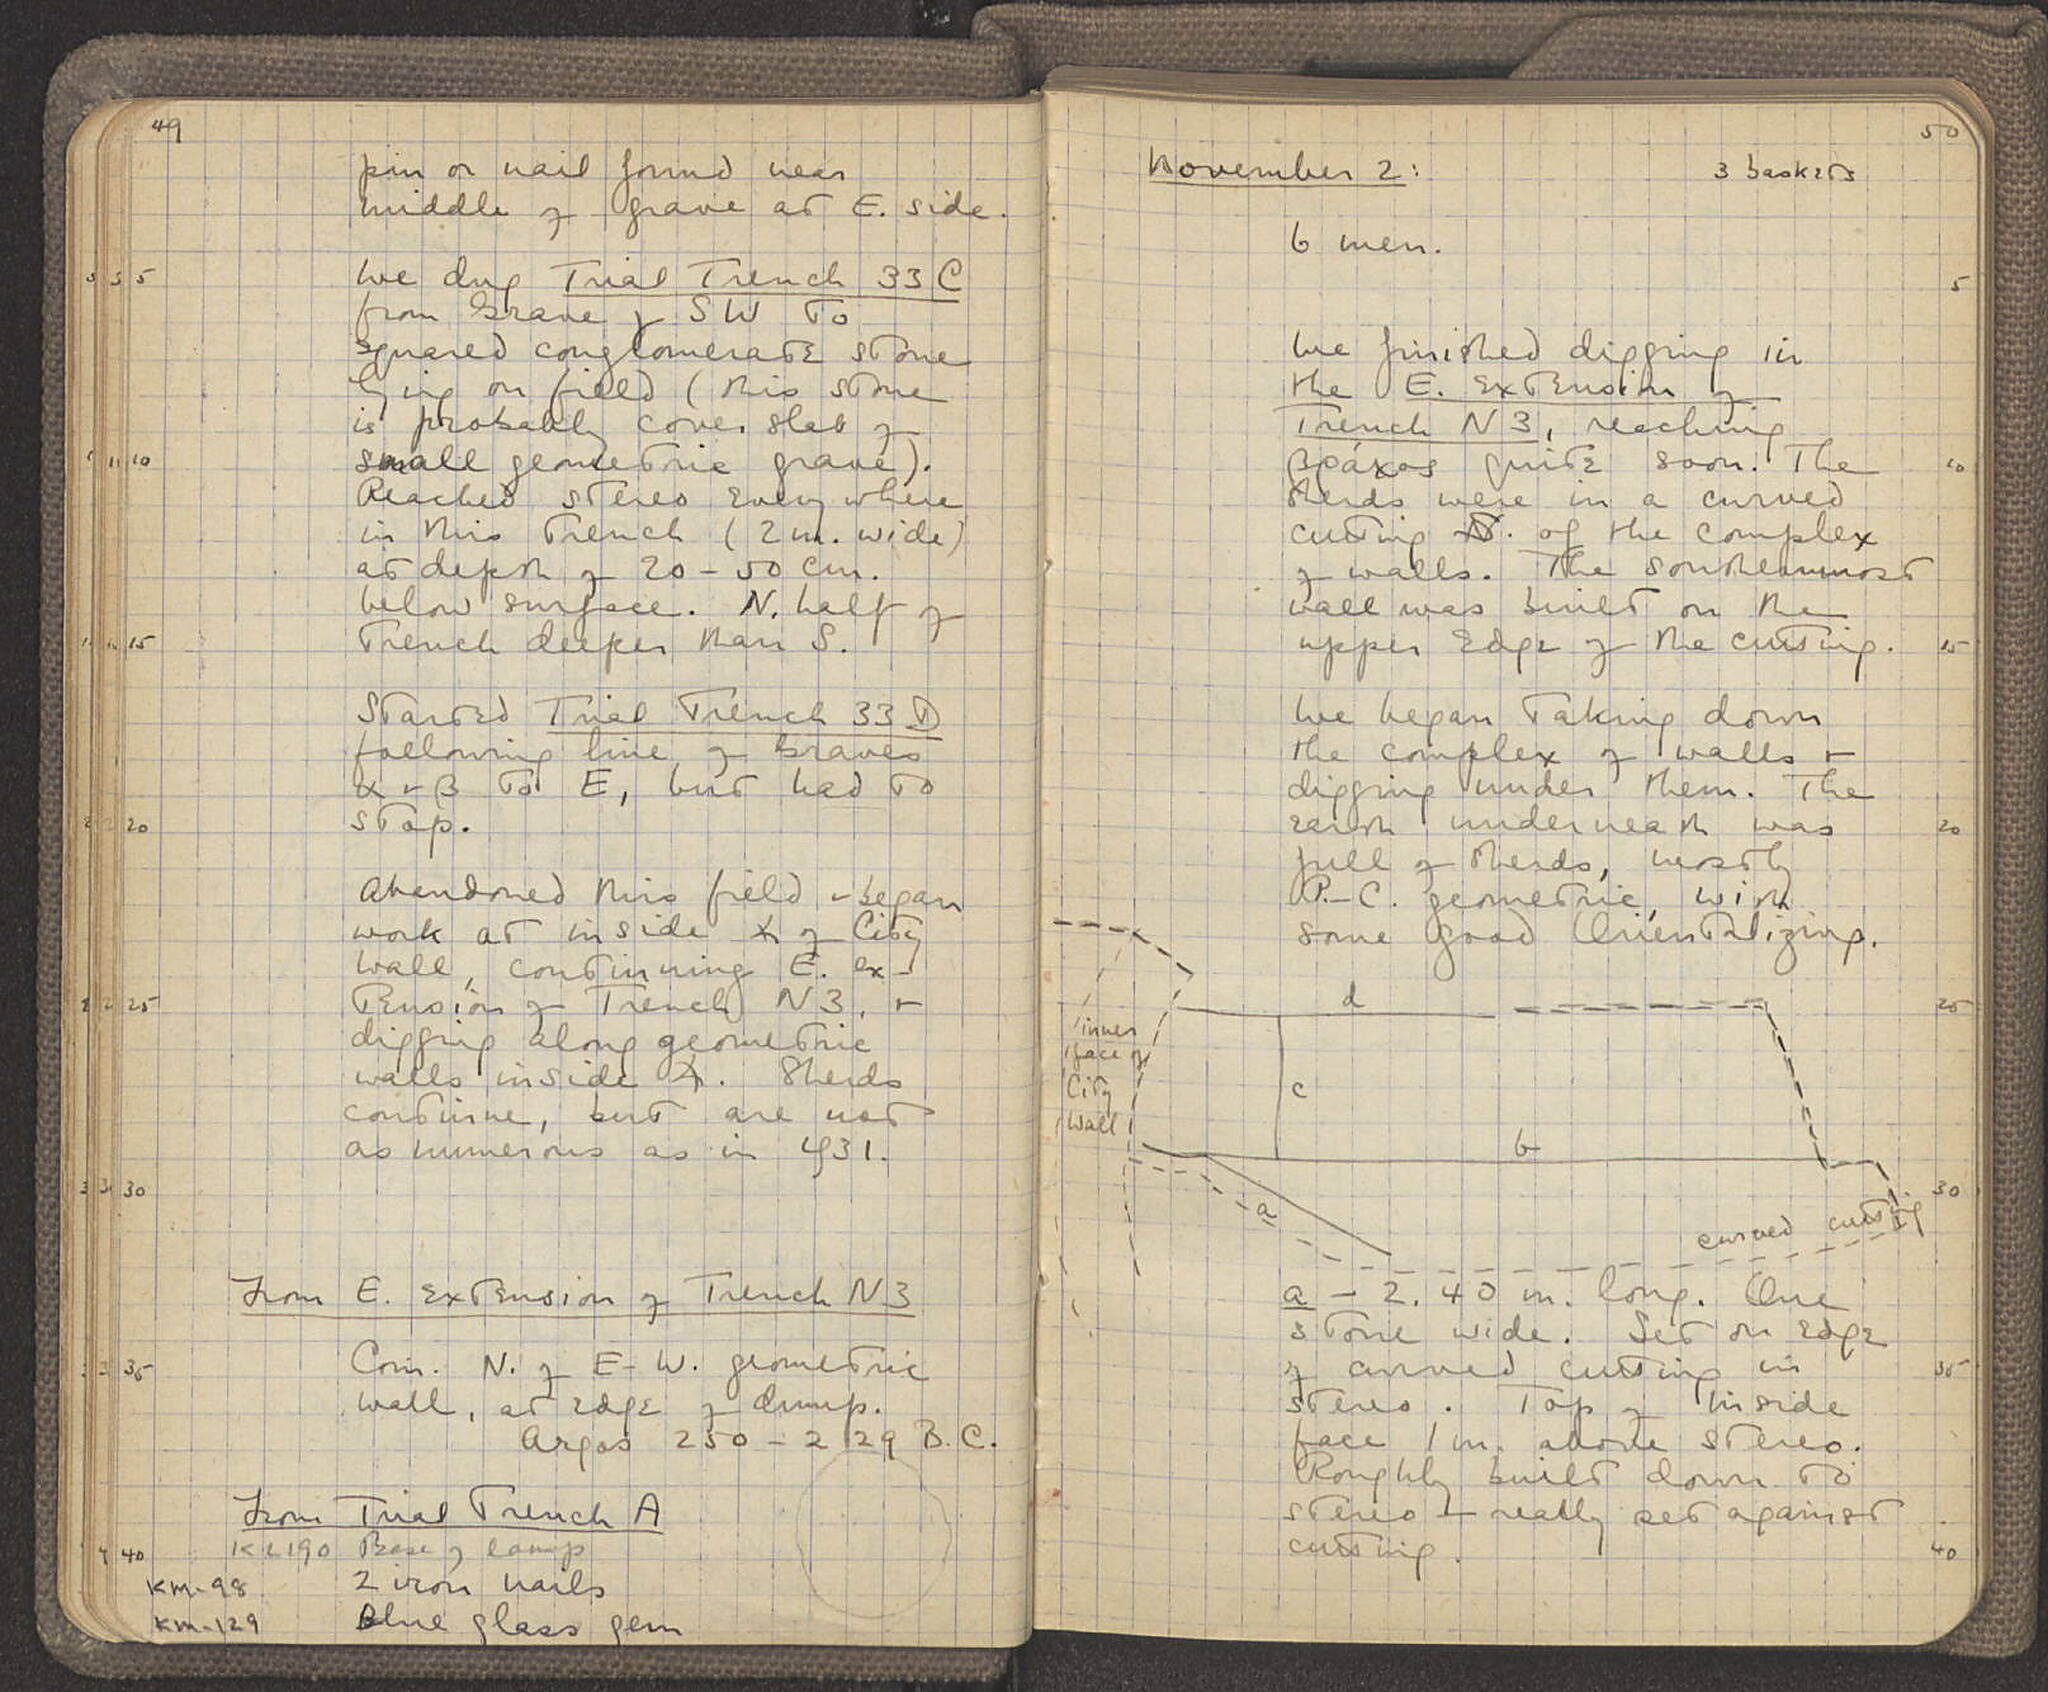 49
pin or nail found near
middle of grave at E. side.
5
We dug Trial Trench 33 C
from Grave γ SW to
squared conglomerate stone
lying on field (this stone
is probably cover slab of
10
small geometric grave).
Reached stereo everywhere
in this trench (2 m. wide)
at depth of 20 - 50 cm.
below surface. N. half of
15
trench deeper than S.
Started Trial Trench 33 D
following line of Graves
α + β to E, but had to
20
stop.
Abandoned this field + began
work at inside of City
Wall, continuing E. ex-
25
tension of Trench N3, +
digging along geometric
walls inside. Sherds
continue, but are not
as numerous as in 1931.
30
From E. extension of Trench N3
35
Coin. N. of E-W. geometric
wall, at edge of dump.
Argos 250 - 229 B.C.
From Trial Trench A
40
KL190 Base of lamp
KM-98 2 iron nails
KM-129 Blue glass gem
50
November 2: 3 baskets
6 men.
5
We finished digging in
the E. extension of
Trench N3, reaching
βράχος quite soon. The
10
sherds were in a curved
cutting N. of the complex
of walls. The southernmost
wall was built on the
upper edge of the cutting.
15
We began taking down
the complex of walls +
digging under them. The
earth underneath was
20
full of sherds, mostly
P.-C. geometric, with
some good Orientalizing.
d
25
inner
face of
City
Wall
c
b
30
a
curved cutting
a - 2.40 m. long. One
stone wide. Set on edge
of curved cutting in
35
stereo. Top of inside
face 1 m. above stereo.
Roughly built down to
stereo - really set against
cutting.
40